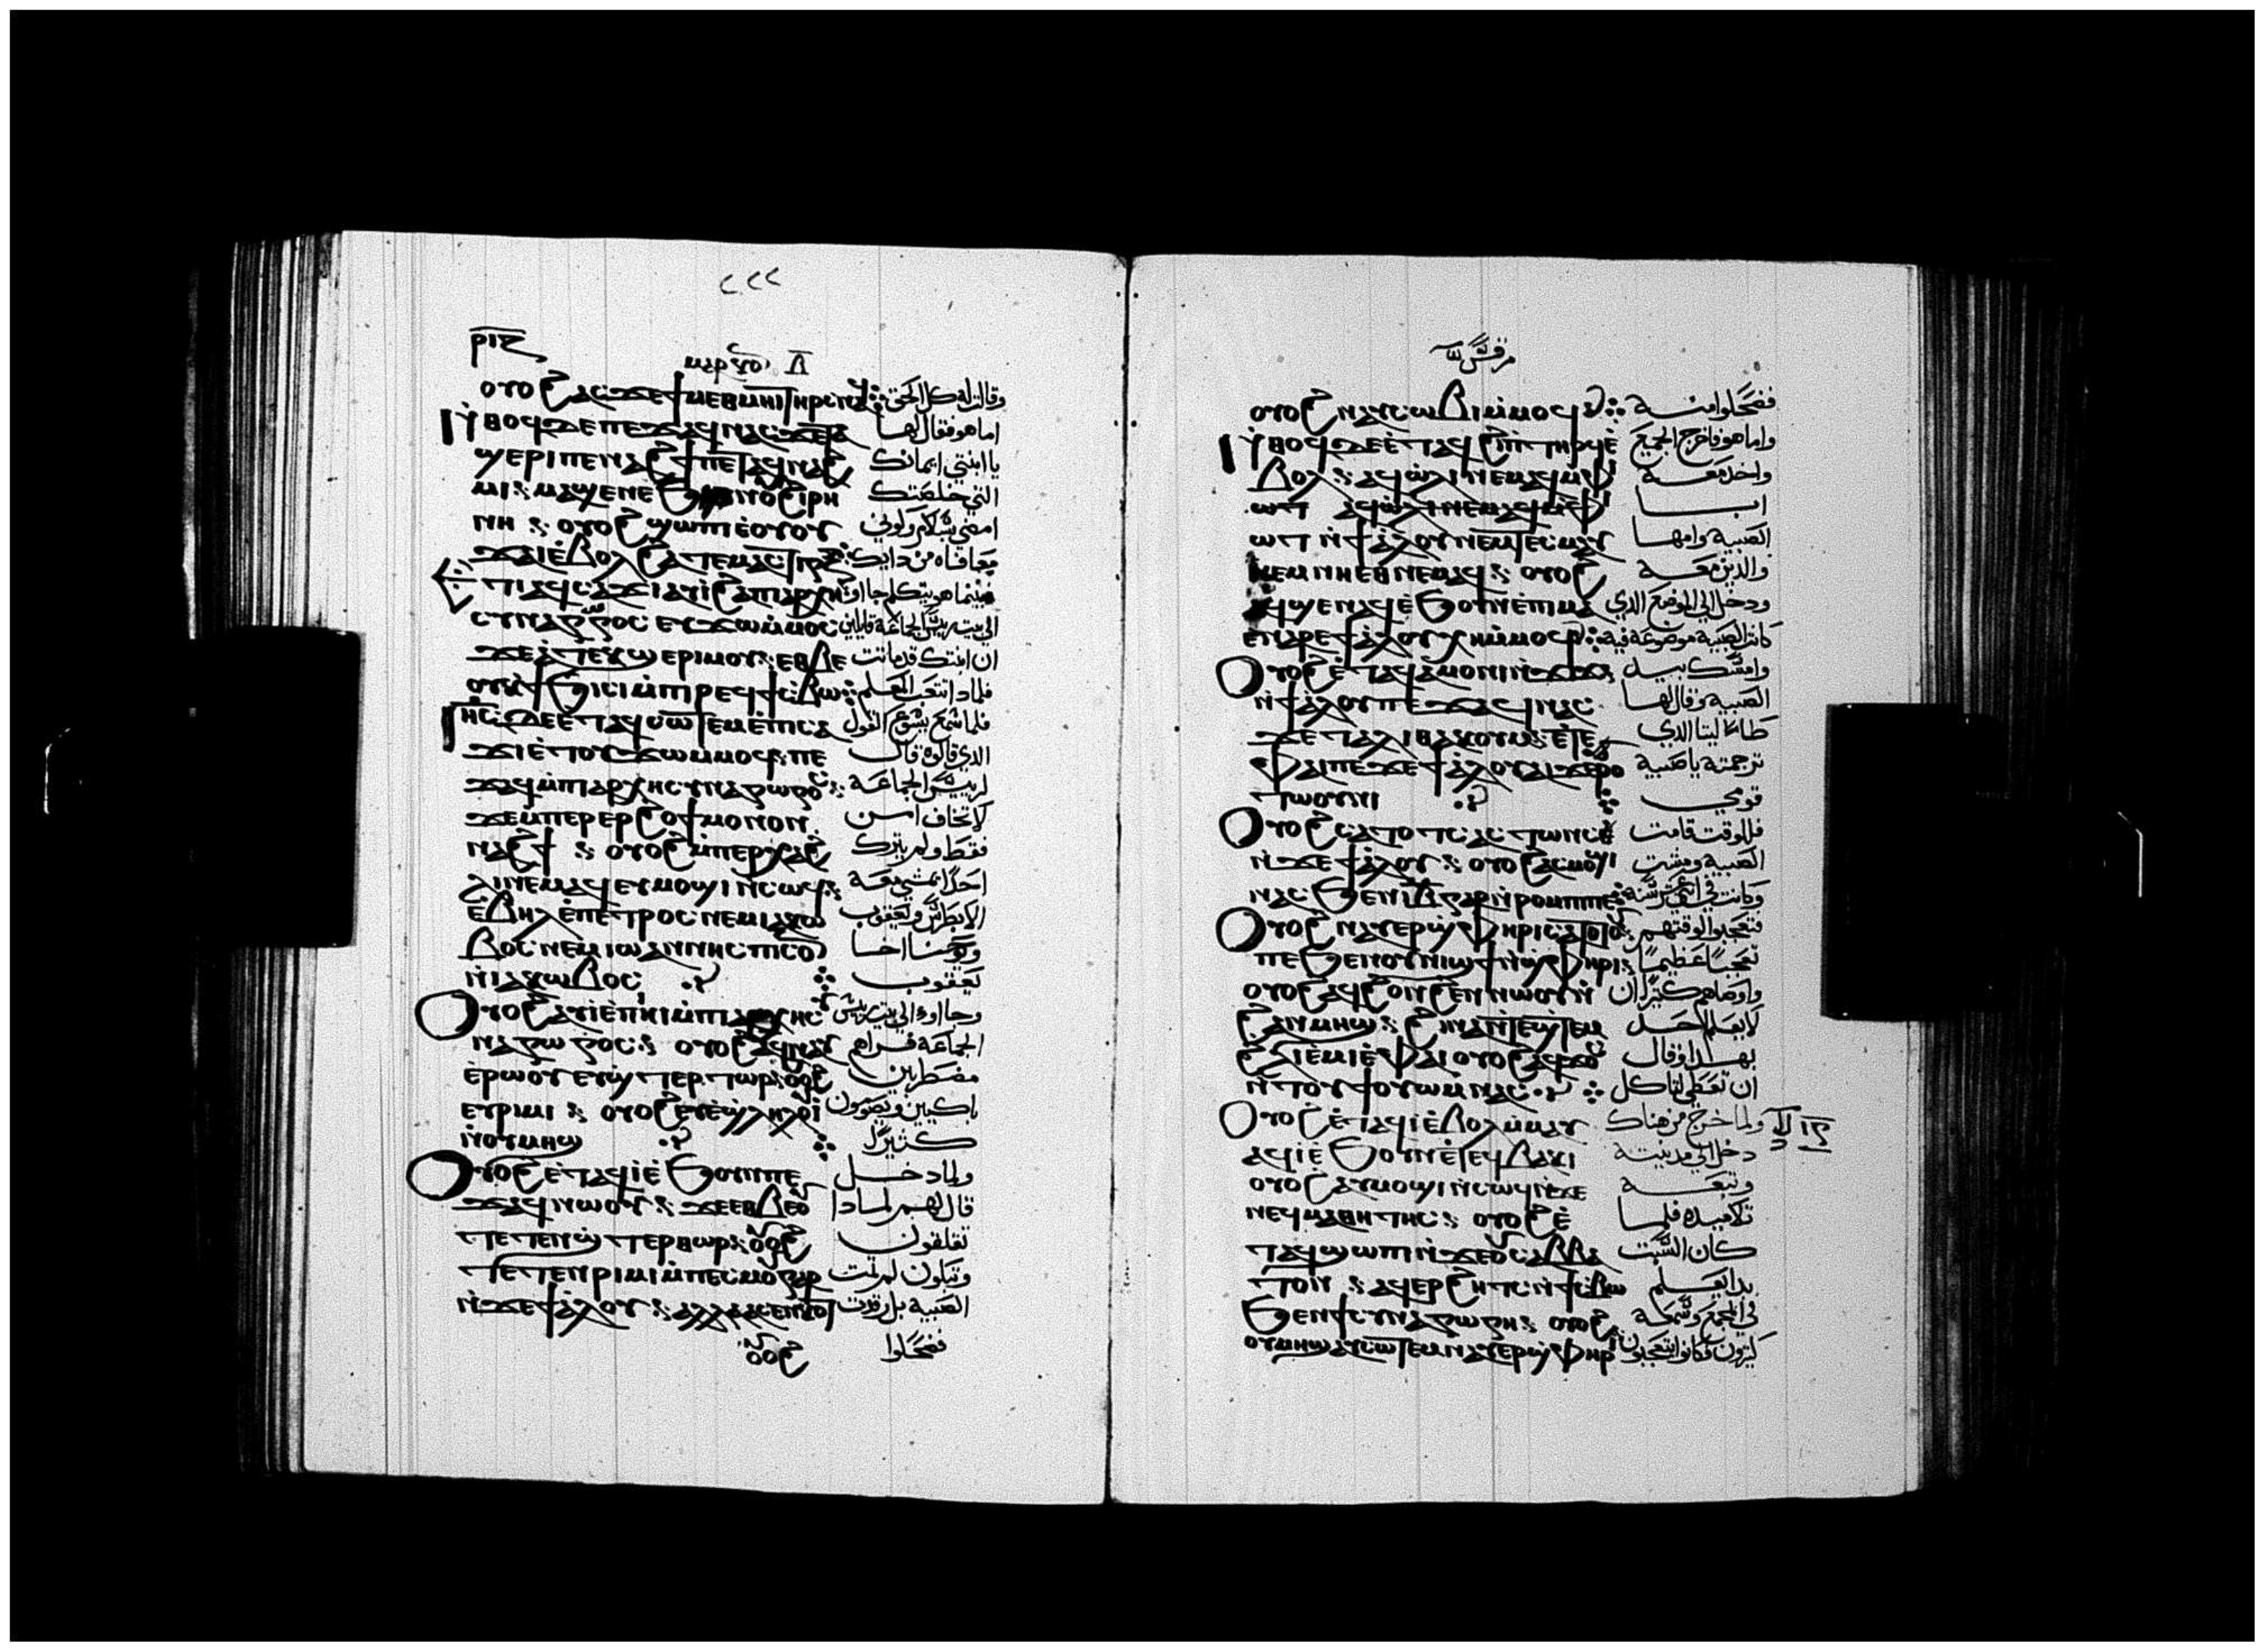 ٢٢٢
ⲣⲓⲍ
ⲟⲩⲟϩ ⲁⲥϫⲉ ϯⲙⲉⲑⲙⲏⲓ ⲧⲏⲣⲥ ⲛⲁϥ وقالت له كل الحق
ⲛ̀ⲑⲟϥ ⲇⲉ ⲡⲉϫⲁϥ ⲛⲁⲥ ϫⲉ ⲧⲁ اما هو فقال لها
ϣⲉⲣⲓ ⲡⲉⲛⲁϩϯ ⲡⲉⲧⲁϥⲛⲁϩ يا ابنتي ايمانك
ⲙⲓ ⲙⲁϣⲉ ⲛⲉ ϧⲉⲛ ⲟⲩϩⲓⲣⲏ التي خلصتك
ⲛⲏ ⲟⲩⲟϩ ϣⲱⲡⲓ ⲉ̀ⲟⲩⲟⲩ امضي بسلام وكوني
ϫⲁⲓ ⲉ̀ⲃⲟⲗ ϩⲁ ⲧⲉⲙⲁⲥⲧⲓⲅⲝ معافاه من دايك
ⲉⲧⲓ ⲁϥⲥⲁϫⲓ ⲁⲩⲓ̀ ϩⲁ ⲡⲓⲁⲣⲭⲏ فبينما هو يتكلم جااوا
ⲥⲩⲛⲁⲅⲱⲅⲟⲥ ⲉⲩϫⲱ ⲙ̀ⲙⲟⲥ الي بيت رييس الجماعة قايلين
ϫⲉ ⲁ̀ ⲧⲉⲕϣⲉⲣⲓ ⲙⲟⲩ ⲉⲑⲃⲉ ان ابنتك قد ماتت
ⲟⲩ ⲕ̀ϯϧⲓⲥⲓ ⲙ̀ⲡⲓⲣⲉϥϯⲥ̀ⲃⲱ فلمادا تتعب المعلم
ⲓⲏ̅ⲥ̅ ⲇⲉ ⲉ̀ⲧⲁϥⲥⲱⲧⲉⲙ ⲉ̀ⲡⲓⲥⲁ فلما سمع يسوع القول
ϫⲓ ⲉ̀ⲧⲟⲩϫⲱ ⲙ̀ⲙⲟϥ ⲡⲉ الدي قالوه قال
ϫⲁϥ ⲙ̀ⲡⲓⲁⲣⲭⲏⲥⲩⲛⲁⲅⲱⲅⲟⲥ لرييس الجماعة
ϫⲉ ⲙ̀ⲡⲉⲣⲉⲣϩⲟϯ ⲙⲟⲛⲟⲛ لا تخاف امن
ⲛⲁϩϯ ⲟⲩⲟϩ ⲙ̀ⲡⲉϥⲭⲁϩ فقط ولم يترك
ⲗⲓ ⲛⲉⲙⲁϥ ⲉⲩⲙⲟϣⲓ ⲛ̀ⲥⲱϥ احدًا يمشي معه
ⲉ̀ⲃⲏⲗ ⲉ̀ⲡⲉⲧⲣⲟⲥ ⲛⲉⲙ ⲓⲁⲕⲱ الا بطرس ويعقوب
ⲃⲟⲥ ⲛⲉⲙ ⲓⲱⲁⲛⲛⲏⲥ ⲡⲥⲟⲛ ويوحنا اخا
ⲛ̀ⲓⲁⲕⲱⲃⲟⲥ يعقوب
ⲟⲩⲟϩ ⲁⲩⲓ̀ ⲉ̀ⲡⲏⲓ ⲙ̀ⲡⲓⲁⲣⲭⲏⲥⲩ وجااوا الي بيت رييس
ⲛⲁⲅⲱⲅⲟⲥ ⲟⲩⲟϩ ⲁϥⲛⲁⲩ الجماعة فراهم
ⲉ̀ⲣⲱⲟⲩ ⲉⲩϣⲧⲉⲣⲧⲱⲣ ⲟⲩⲟϩ مضطربين
ⲉⲩⲣⲓⲙⲓ ⲟⲩⲟϩ ⲉⲩⲉ̀ϣⲗⲏⲗⲟⲩⲓ̀ باكيين ويصوتون
ⲛ̀ⲟⲩⲙⲏϣ كثيرًا
ⲟⲩⲟϩ ⲉ̀ⲧⲁϥⲓ̀ ⲉ̀ϧⲟⲩⲛ ⲡⲉ ولما دخل
ϫⲁϥ ⲛⲱⲟⲩ ϫⲉ ⲉⲑⲃⲉⲟⲩ قال لهم لمادا
ⲧⲉⲧⲉⲛϣⲧⲉⲣⲑⲱⲣ ⲟⲩⲟϩ تقلقون
ⲧⲉⲧⲉⲛⲣⲓⲙⲓ ⲙ̀ⲡⲉⲥⲙⲟⲩ ⲅⲁⲣ وتبكون لم تمت
ⲛ̀ϫⲉ ϯⲁ̀ⲗⲟⲩ ⲁⲗⲗⲁ ⲁⲥⲉⲛⲕⲟⲧ الصبية بل رقدت
ⲟⲩⲟϩ فضحكوا
مرقس
ⲟⲩⲟϩ ⲛⲁⲩⲥⲱⲃⲓ ⲙ̀ⲙⲟϥ فضحكوا منه
ⲛ̀ⲑⲟϥ ⲇⲉ ⲉ̀ⲧⲁϥϩⲓ ⲡⲧⲏⲣϥ ⲉ̀ واما هو فاخرج الجميع
ⲃⲟⲗ ⲁϥⲱ̀ⲗⲓ ⲛⲉⲙⲁϥ ⲙ̀ⲫⲓ واخد معه
ⲱⲧ ⲁϥⲱ̀ⲗⲓ ⲛⲉⲙⲁϥ ⲙ̀ⲫⲓ ابا
ⲱⲧ ⲛ̀ϯⲁ̀ⲗⲟⲩ ⲛⲉⲙ ⲧⲉⲥⲙⲁⲩ الصبية وامها
ⲛⲉⲙ ⲛⲏⲉⲑⲛⲉⲙⲁϥ ⲟⲩⲟϩ والدين معه
ⲁϥϣⲉⲛⲁϥ ⲉ̀ϧⲟⲩⲛ ⲉ̀ⲡⲓⲙⲁ ودخل الي الموضع الدي
ⲉⲛⲁⲣⲉ ϯⲁ̀ⲗⲟⲩ ⲭⲏ ⲙ̀ⲙⲟϥ كانت الصبية موضوعة فيه
ⲟⲩⲟϩ ⲉ̀ⲧⲁϥⲁ̀ⲙⲟⲛⲓ ⲛ̀ⲧϫⲓϫ وامسك بيد
ⲛ̀ϯⲁ̀ⲗⲟⲩ ⲡⲉϫⲁϥ ⲛⲁⲥ الصبية وقال لها
ϫⲉ ⲧⲁⲗⲓⲑⲁ ⲕⲟⲩⲙ ⲉ̀ⲧⲉ طاليتا الدي
ⲫⲁⲓ ⲡⲉ ϫⲉ ϯⲁ̀ⲗⲟⲩ ⲁⲓϫⲉⲣⲟ ترجمته يا صبية
ⲧⲱⲟⲩⲛⲓ قومي
ⲟⲩⲟϩ ⲥⲁⲧⲟⲧⲥ ⲁⲥⲧⲱⲛⲥ فللوقت قامت
ⲛ̀ϫⲉ ϯⲁ̀ⲗⲟⲩ ⲟⲩⲟϩ ⲁⲥⲙⲟϣⲓ الصبية ومشت
ⲛⲁⲥϧⲉⲛ ⲓ̅ⲃ̅ ⲅⲁⲣ ⲛ̀ⲣⲟⲙⲡⲓ ⲡⲉ وكانت في اثني عشر سنة
ⲟⲩⲟϩ ⲛⲁⲩⲉⲣϣ̀ⲫⲏⲣⲓ ⲥⲁⲧⲟⲧⲟⲩ فتعجبوا لوقتهم
ⲡⲉ ϧⲉⲛ ⲟⲩⲛⲓϣϯ ⲛ̀ϣ̀ⲫⲏⲣⲓ تعجبًا عظيمًا
ⲟⲩⲟϩ ⲁϥϩⲟⲛϩⲉⲛ ⲛⲱⲟⲩ ⲛ̀ واوصاهم كثيرًا ان
ϩⲁⲛⲙⲏϣ ϩⲓⲛⲁ ⲛ̀ⲧⲉϣⲧⲉⲙ لا يعلم احد
ϩⲗⲓ ⲉ̀ⲙⲓ ⲉ̀ⲫⲁⲓ ⲟⲩⲟϩ ⲁϥϫⲟⲥ بهدا وقال
ⲛ̀ⲧⲟⲩϯ ⲟⲩⲱⲙ ⲛⲁⲥ ان تعطي لتاكل
ⲟⲩⲟϩ ⲉ̀ⲧⲁϥⲓ̀ ⲉ̀ⲃⲟⲗ ⲙ̀ⲙⲁⲩ ولما خرج من هناك
ⲁϥⲓ̀ ⲉ̀ϧⲟⲩⲛ ⲉ̀ⲧⲉϥⲃⲁⲕⲓ دخل الي مدينته
ⲟⲩⲟϩ ⲁⲩⲙⲟϣⲓ ⲛ̀ⲥⲱϥ ⲛ̀ϫⲉ وتبعه
ⲛⲉϥⲙⲁⲑⲏⲧⲏⲥ ⲟⲩⲟϩ ⲉ̀ تلاميده فلما
ⲧⲁϥϣⲱⲡⲓ ⲛ̀ϫⲉ ⲟⲩⲥⲁⲃⲃⲁ كان السبت
ⲧⲟⲛ ⲁϥⲉⲣϩⲏⲧⲥ ⲛ̀ϯⲥ̀ⲃⲱ بدا يعلم
ϧⲉⲛ ϯⲥⲩⲛⲁⲅⲱⲅⲏ ⲟⲩⲟϩ في المجمع وسمعه
ⲟⲩⲙⲏϣ ⲁⲩⲥⲱⲧⲉⲙ ⲛⲁⲩⲉⲣϣ̀ⲫⲏⲣⲓ كثيرون فكانوا يتعجبون